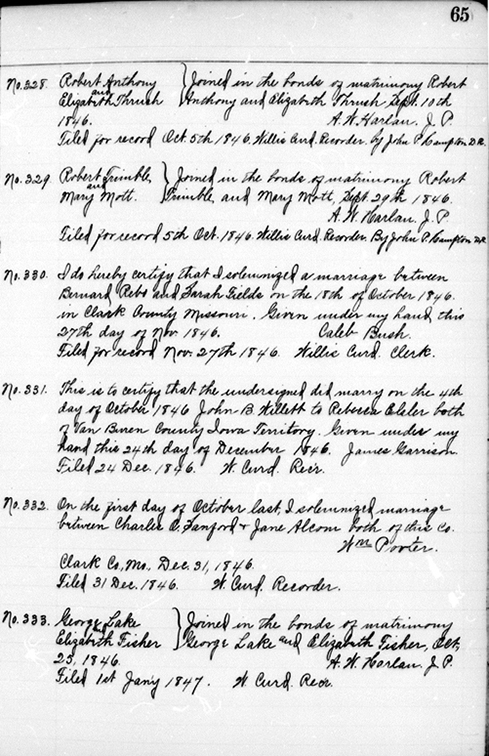 65
No. 328. Robert Anthony } Joined in the bonds of matrimony Robert
and
Elizabeth Thrush Anthony and Elizabeth Thrush Sept. 10th
1846. A. W. Harlan. J. P.
Filed for record Oct. 5th 1846. Willis Curd. Recorder. by John P. Campton D.R.
No. 329. Robert Trimble } Joined in the bonds of matrimony Robert
and
Mary Mott. Trimble and Mary Mott, Sept. 29th 1846.
A. W. Harlan. J. P
Filed for record 5th Oct. 1846. Willis Curd. Recorder. By John P. Campton D.R.
No. 330. I do hereby certify that I solemnized a marriage between
Bernard Rebo and Sarah Fields on the 18th of October 1846.
in Clark County Missouri. Given under my hand this
27th day of Nov. 1846. Caleb Bush.
Filed for record Nov. 27th 1846. Willis Curd. Clerk.
No. 331. This is to certify that the undersigned did marry on the 4th
day of October 1846 John B. Willett to Rebecca both
of Van Buren County Iowa Territory. Given under my
hand this 24th day of December 1846. James Garrison.
Filed 24 Dec. 1846. W. Curd. Recr.
No. 332. On the first day of October last, I solemnized marriage
between Charles O. Sanford + Jane Alcom both of this Co.
Wm Porter.
Clark Co, Mo, Dec. 31, 1846.
Filed 31 Dec. 1846. W. Curd. Recorder.
No. 333. George Lake } Joined in the bonds of matrimony
&
Elizabeth Fisher George Lake and Elizabeth Fisher, Oct,
25, 1846. A. W. Harlan, J. P.
Filed 1st Jany 1847. W. Curd. Recr.